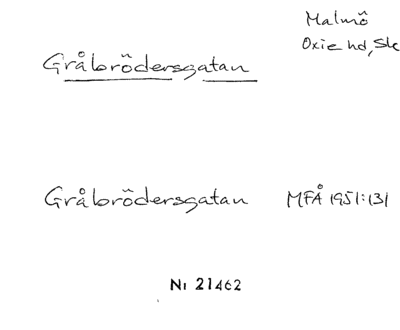 Malmö
Oxie hd, Sk
Gråbrödersgatan
Gråbrödersgatan MFÅ 1951:131
Ni 21462